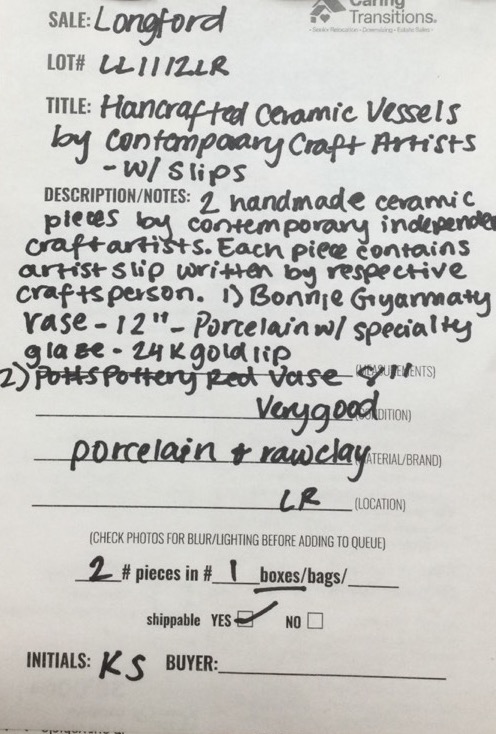 Caring
Transitions.
- Senior Relocation - Downsizing - Estate Sales -
SALE: Longford
LOT# LL1112LR
TITLE: Hancrafted Ceramic Vessels
by Contemporary Craft Artists
- W/ Slips
DESCRIPTION/NOTES: 2 handmade ceramic
pieces by contemporary independen
craft artists. Each piece contains
artist slip written by respective
craftsperson. 1) Bonnie Gyarmaty
vase - 12" - Porcelain w/ specialty
glaze - 24K gold lip
2) Potts Pottery Red Vase 8" (MEASUREMENTS)
Very good (CONDITION)
porcelain + raw clay (MATERIAL/BRAND)
LR (LOCATION)
(CHECK PHOTOS FOR BLUR/LIGHTING BEFORE ADDING TO QUEUE)
2 # pieces in # 1 boxes/bags/
shippable YES NO
INITIALS: KS BUYER: